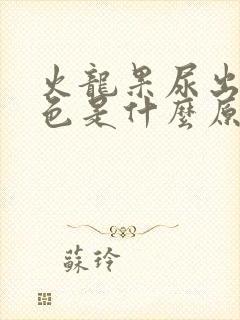 火龍果尿出
色是什麼原
蘇玲